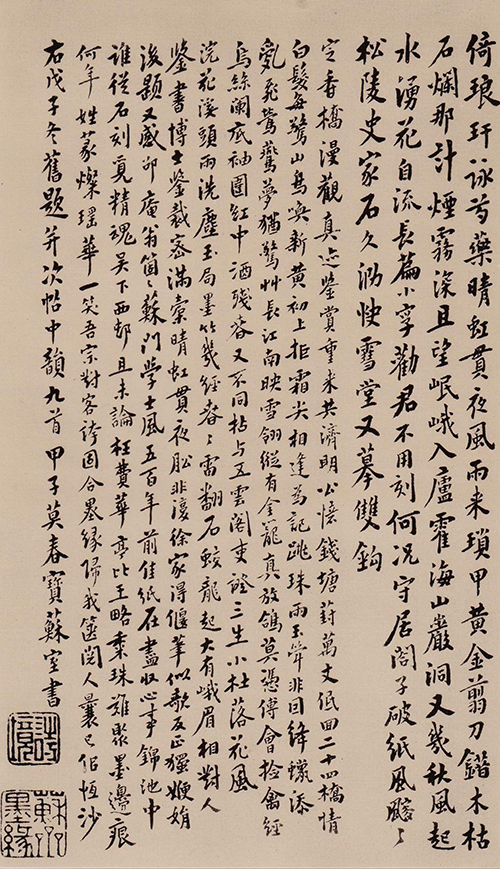 倚琅玕詠芍藥晴虹貫夜風雨來瑣甲黃金翦刀鍇木枯
石爛那計煙霧深且望岷峨入廬霍海山巖洞又幾秋風起
水湧花自流長篇小字勸君不用刻何況守居閣子破紙風颼〻
松陵史家石久泐快雪堂又摹雙鉤
定香橋漫觀真迹鑒賞重來共濟明公憶錢塘葑萬丈低回二十四橋情
白髮每驚山鳥喚新黃初上拒霜尖相逢為記跳珠雨玉筍非因絳蠟添
亂飛鶯燕夢猶驚艸長江南映雪翎縱有金籠真放鴿莫憑傅會撿禽經
烏絲闌底袖圍紅中酒殘春又不同拈与五雲閣吏證三生小杜落花風
浣花溪頭雨洗塵玉局墨竹幾經春〻雷翻石蛟龍起大有峨眉相對人
鑒書博士鑒裁密滿橐晴虹貫夜船非復徐家得偃筆似歌反正便娟
後題又感邵庵翁箇〻蘇門學士風五百年前佳紙在盡收心事錦池中
誰從石刻覓精魂吳下西邨且未論枉費華亭比王略珠難聚墨邊痕
何年姓篆燦瑤華一笑吾宗對客誇因合墨緣歸我篋閱人曩已佀恆沙
右戊子冬舊題并次帖中韻九首甲子莫春寶蘇室書
詩境
墨緣